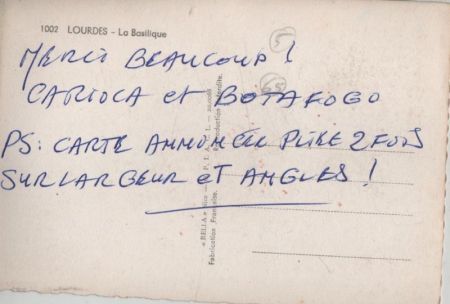 1002 LOURDES - La Basilique
MERCI BEAUCOUP !
CARIOCA et BOTAFOGO
PS: CARTE ANNONCÉE PLIÉE 2 FOIS
SUR LARGEUR et ANGLES !
65
« BELLA »
Fabrication Française.
Reproduction interdite.